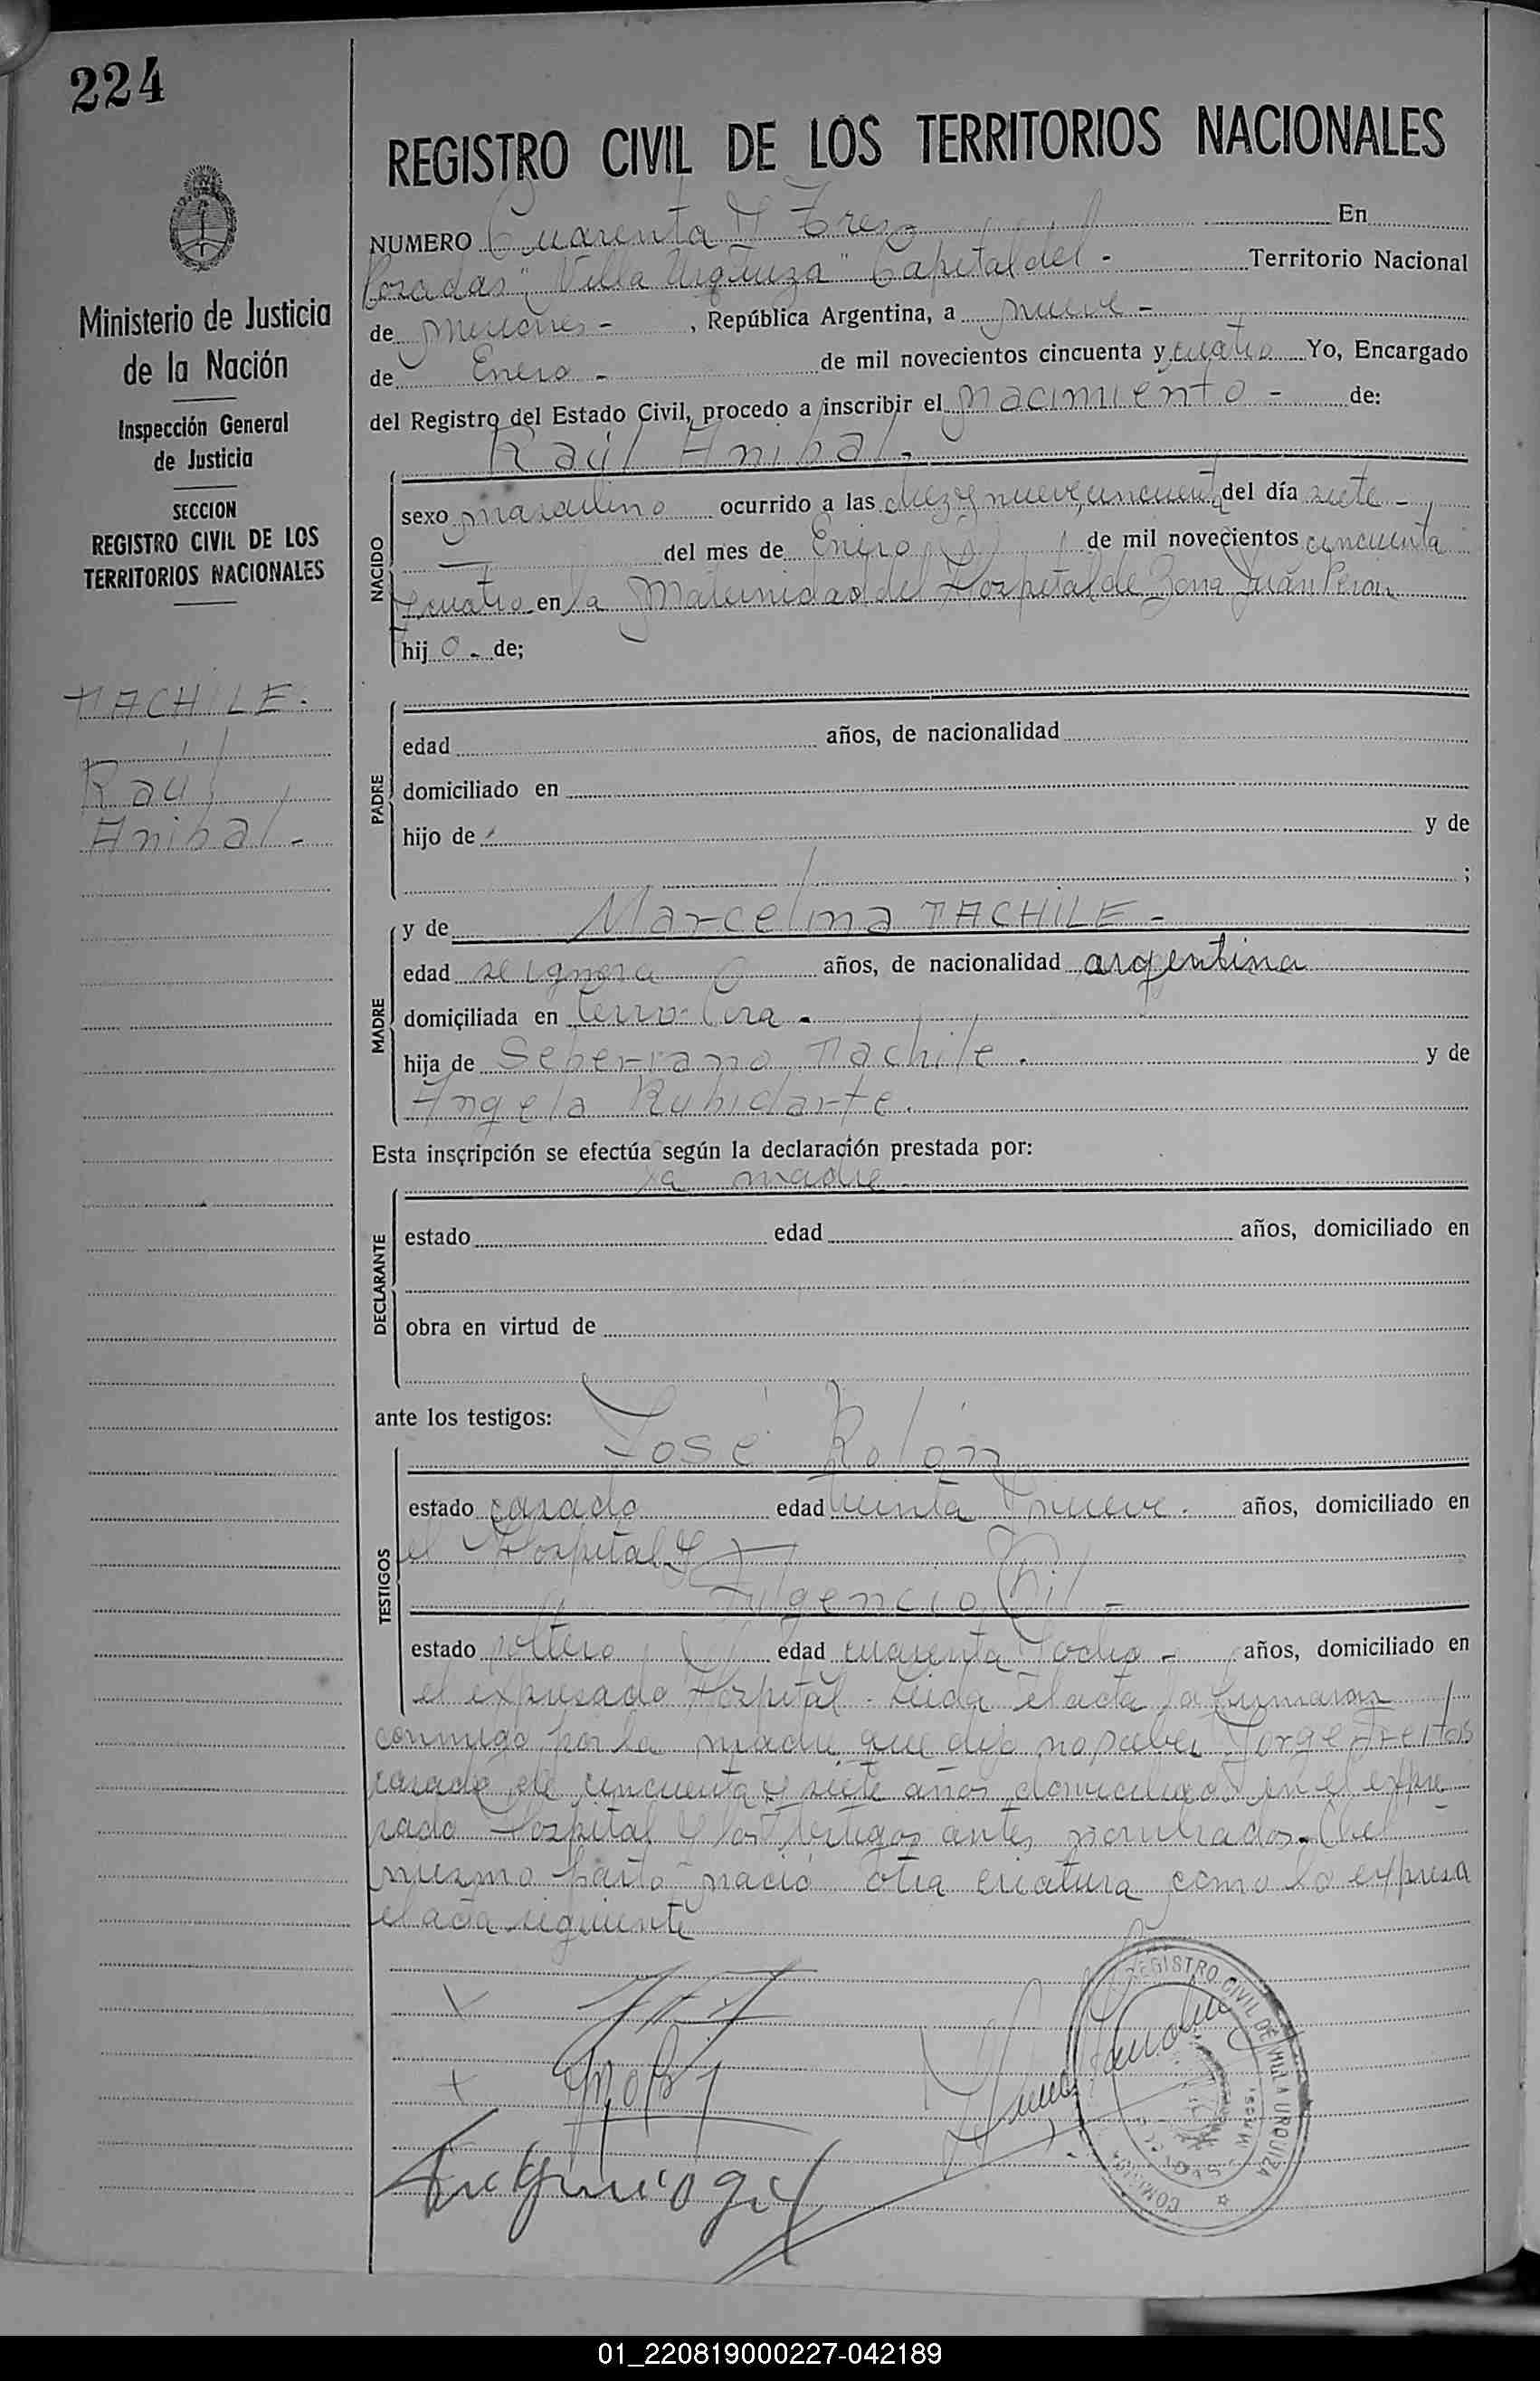 224
REGISTRO CIVIL DE LOS TERRITORIOS NACIONALES
NUMERO Cuarenta y Tres En
Posadas "Villa Urquiza" Capital del - Territorio Nacional
de Misiones - , República Argentina, a nueve -
de Enero - de mil novecientos cincuenta y cuatro Yo, Encargado
del Registro del Estado Civil, procedo a inscribir el nacimiento - de:
Raúl Anibal -
Ministerio de Justicia
de la Nación
Inspección General
de Justicia
SECCION
REGISTRO CIVIL DE LOS
TERRITORIOS NACIONALES
TACHILE.
Raúl
Anibal -
NACIDO
sexo masculino ocurrido a las diez y nueve, cincuenta del día siete -
del mes de Enero de mil novecientos cincuenta
y cuatro en la Maternidad del Hospital de Zona Juan Peron
hijo - de;
PADRE
edad años, de nacionalidad
domiciliado en
hijo de y de
;
MADRE
y de Marcelina TACHILE -
edad se ignora años, de nacionalidad argentina
domiciliada en Cerro Corá -
hija de Seberiano Tachile . y de
Angela Rubidarte.
Esta inscripción se efectúa según la declaración prestada por:
la madre.
DECLARANTE
estado edad años, domiciliado en
obra en virtud de
ante los testigos:
José Rolón
TESTIGOS
estado casado edad treinta y nueve. años, domiciliado en
el Hospital y
Fulgencio Gil -
estado soltero edad cuarenta y ocho - años, domiciliado en
el expresado Hospital. Leida el acta la firmaron
conmigo por la madre que dijo no saber Jorge Freitas
casado de cincuenta y siete años domiciliado en el expre
sado Hospital y los testigos antes nombrados. Del
mismo parto nació otra criatura como lo expresa
el acta siguiente
REGISTRO CIVIL DE VILLA URQUIZA
01_220819000227-042189